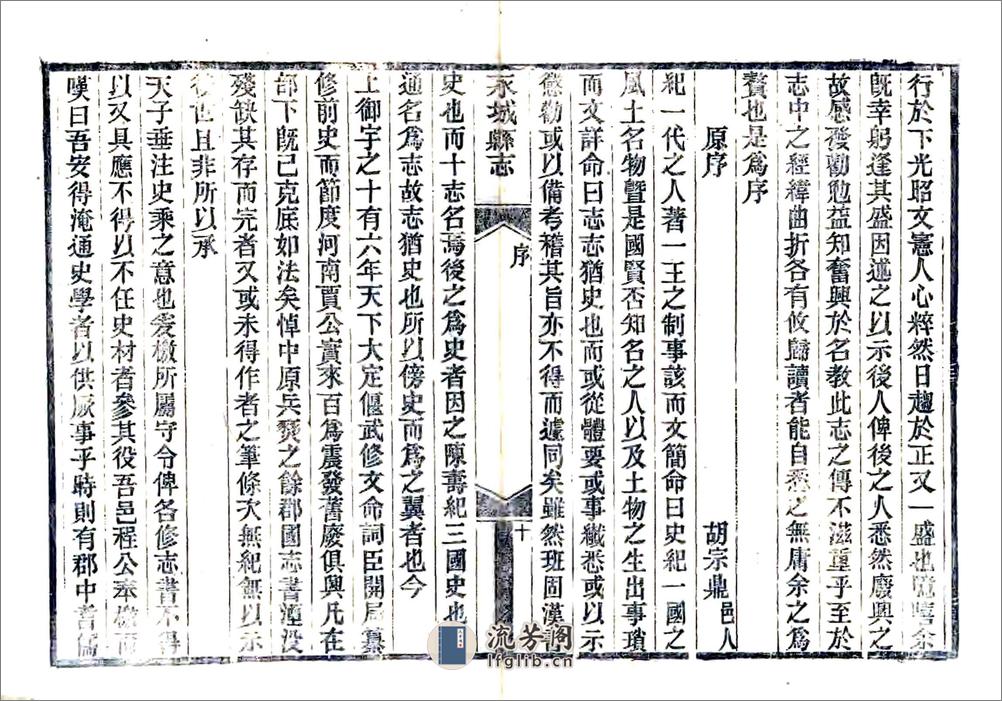 行於下光昭文憲人心粹然日趨於正又一盛也噫嘻余
既幸躬逢其盛因述之以示後人俾後之人悉然廢興之
故感發勸勉益知奮興於名教此志之傳不滋重乎至於
志中之經緯曲折各有攸歸讀者能自悉之無庸余之為
贅也是為序
原序 胡宗鼎邑人
紀一代之人著一王之制事該而文簡命曰史紀一國之
風土名物暨是國賢否知名之人以及土物之生出事瑣
而文詳命曰志志猶史也而或從體要或事纖悉或以示
懲勸或以備考稽其旨亦不得而遽同矣雖然班固漢書
永城縣志
序
十
史也而十志名焉後之為史者因之陳壽紀三國史也
通名為志故志猶史也所以傍史而為之翼者也今
上御宇之十有六年天下大定偃武修文命詞臣開局纂
修前史而節度河南賈公實來百為震發舊廢俱興凡在
部下既已克底如法矣悼中原兵燹之餘郡國志書湮没
殘缺其存而完者又或未得作者之筆條次無紀無以示
後世且非所以承
天子垂注史乘之意也爰檄所屬守令俾各修志書不得
以又具應不得以不任史材者參其役吾邑程公奉檄而
嘆曰吾安得淹通史學者以供厥事乎時則有郡中耆儒
流芳閣
lfglib.cn